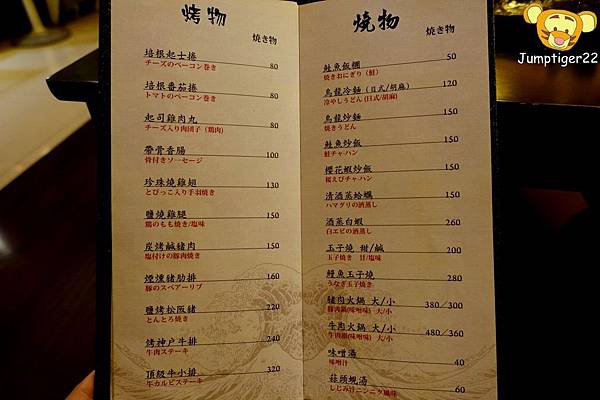 烤物
焼き物
培根起士捲 80
チーズのベーコン巻き
培根番茄捲 80
トマトのベーコン巻き
起司雞肉丸 80
チーズ入り肉団子（鶏肉）
帶骨香腸 100
骨付きソーセージ
珍珠燒雞翅 130
とびっこ入り手羽焼き
鹽燒雞腿 150
鶏のもも焼き/塩味
炭烤鹹豬肉 150
塩付けの豚肉焼き
煙燻豬肋排 160
豚のスペアーリブ
鹽烤松阪豬 220
とんとろ焼き
烤神戶牛排 240
牛肉ステーキ
頂級牛小排 320
牛カルビステーキ
燒物
焼き物
鮭魚飯糰 50
焼きおにぎり（鮭）
烏龍冷麵（日式/胡麻） 120
冷やしうどん(日式/胡麻)
烏龍炒麵 150
焼きうどん
鮭魚炒飯 150
鮭チャーハン
櫻花蝦炒飯 150
桜えびチャーハン
清酒蒸蛤蠣 150
ハマグリの酒蒸し
酒蒸白蝦 260
白エビの酒蒸し
玉子燒 甜/鹹 200
玉子焼き 甘/塩味
鰻魚玉子燒 280
うなぎ玉子焼き
豬肉火鍋 大/小 380/300
豚肉鍋(味噌味) 大/小
牛肉火鍋 大/小 480/360
牛肉鍋(味噌味) 大/小
味噌湯 40
味噌汁
蒜頭蜆湯 60
しじみ汁ニンニク風味
Jumptiger22